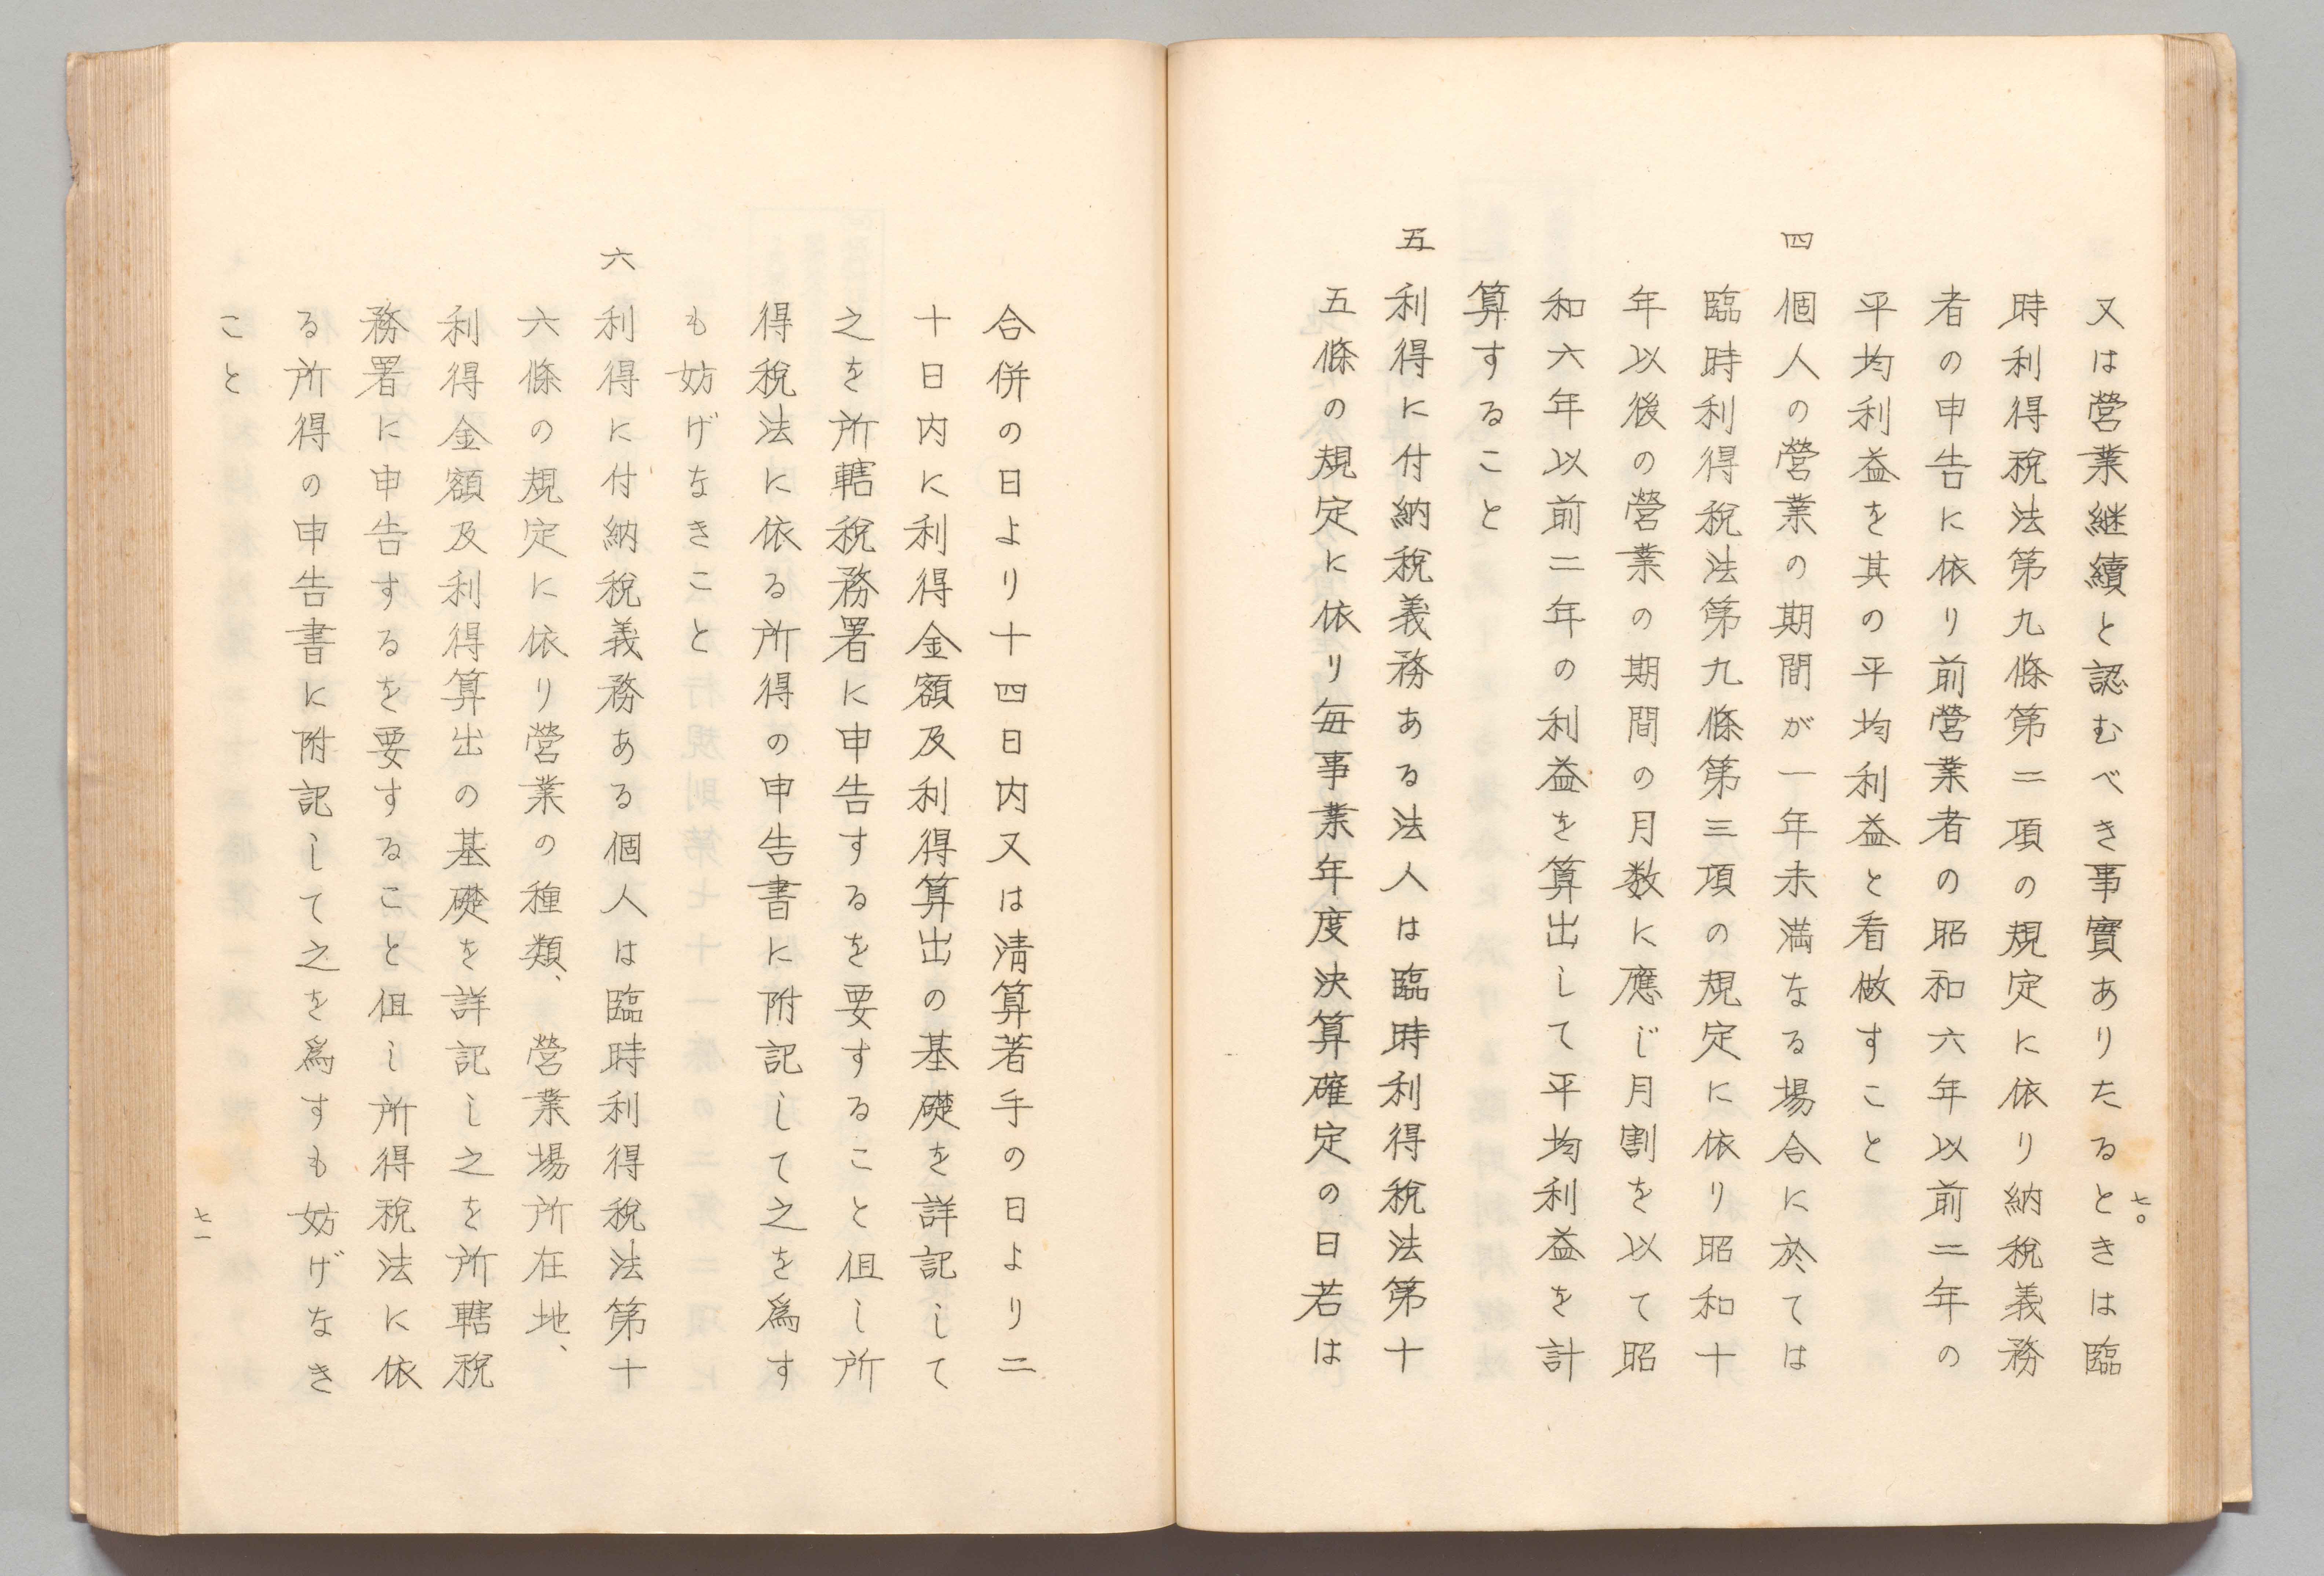 又は營業継續と認むべき事實ありたるときは臨
時利得稅法第九條第二項の規定に依り納稅義務
者の申告に依り前營業者の昭和六年以前二年の
平均利益を其の平均利益と看做すこと
四 個人の營業の期間が一年未満なる場合に於ては
臨時利得稅法第九條第三項の規定に依り昭和十
年以後の營業の期間の月数に應じ月割を以て昭
和六年以前二年の利益を算出して平均利益を計
算すること
五 利得に付納稅義務ある法人は臨時利得稅法第十
五條の規定に依り毎事業年度決算確定の日若は
七〇
合併の日より十四日内又は淸算著手の日より二
十日内に利得金額及利得算出の基礎を詳記して
之を所轄稅務署に申告するを要すること但し所
得稅法に依る所得の申告書に附記して之を爲す
も妨げなきこと
六 利得に付納稅義務ある個人は臨時利得稅法第十
六條の規定に依り營業の種類、營業場所在地、
利得金額及利得算出の基礎を詳記し之を所轄稅
務署に申告するを要すること但し所得稅法に依
る所得の申告書に附記して之を爲すも妨げなき
こと
七一